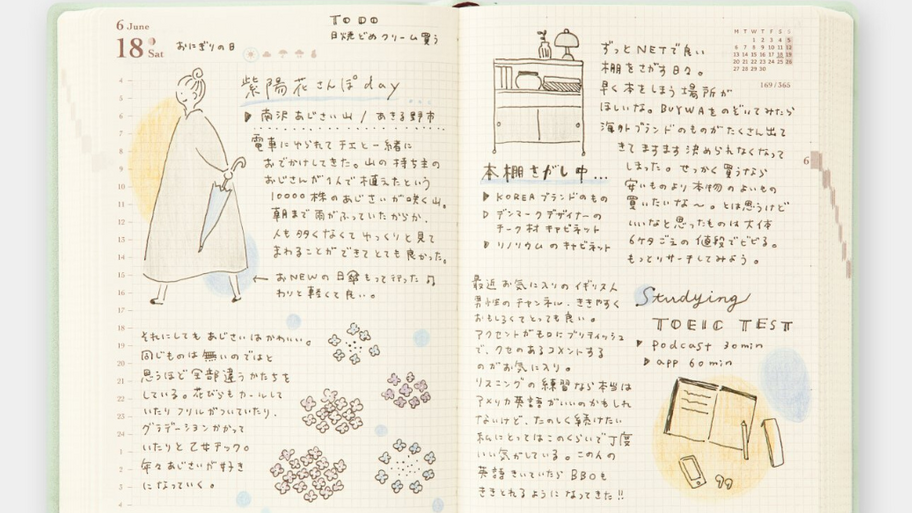 6 June
18 Sat
おにぎりの日
TO DO
日焼どめクリーム買う
紫陽花さんぽ day
南沢あじさい山 / あきる野市
電車にゆられて チエと一緒に
おでかけしてきた。山の持ち主の
おじさんが1人で植えたという
10000株のあじさいが咲く山。
朝まで雨がふっていたからか、
人も多くなくて ゆっくりと見て
まわることができてとても良かった。
← おNEWの日傘もって行った
わりと軽くて良い。
それにしても あじさいはかわいい。
同じものは無いのではと
思うほど全部違うかたちを
している。花びらもカールして
いたり フリルがついていたり、
グラデーションかかって
いたりと乙女チック。
年々あじさいが好き
になっていく。
4
5
6
7
8
9
10
11
12
13
14
15
16
17
18
19
20
21
22
23
24
1
2
3
本棚さがし中...
KOREAブランドのもの
デンマークデザイナーの
チーク材キャビネット
リノリウムのキャビネット
ずっとNETで良い
棚をさがす日々。
早く本をしまう場所が
ほしいな。BUYMAをのぞいてみたら
海外ブランドのものがたくさん出て
きて ますます決められなくなって
しまった。せっかく買うなら
安いものより本物のよいもの
買いたいな〜。とは思うけど
いいなと思ったものは大体
6ケタごえの値段でビビる。
もっとリサーチしてみよう。
M T W T F S S
1 2 3 4 5
6 7 8 9 10 11 12
13 14 15 16 17 18 19
20 21 22 23 24 25 26
27 28 29 30
169/365
6
最近お気に入りのイギリス人
男性のチャンネル、ききやすく
おもしろくてとっても良い。
アクセントがもろにブリティッシュ
で、クセのあるコメントする
のがお気に入り。
リスニングの練習なら本当は
アメリカ英語がいいのかもしれ
ないけど、たのしく続けたい
私にとってはこのくらいで丁度
いい気がしている。この人の
英語きいていたらBBCも
ききとれるようになってきた!!
Studying
TOEIC TEST
podcast 30min
app 60min